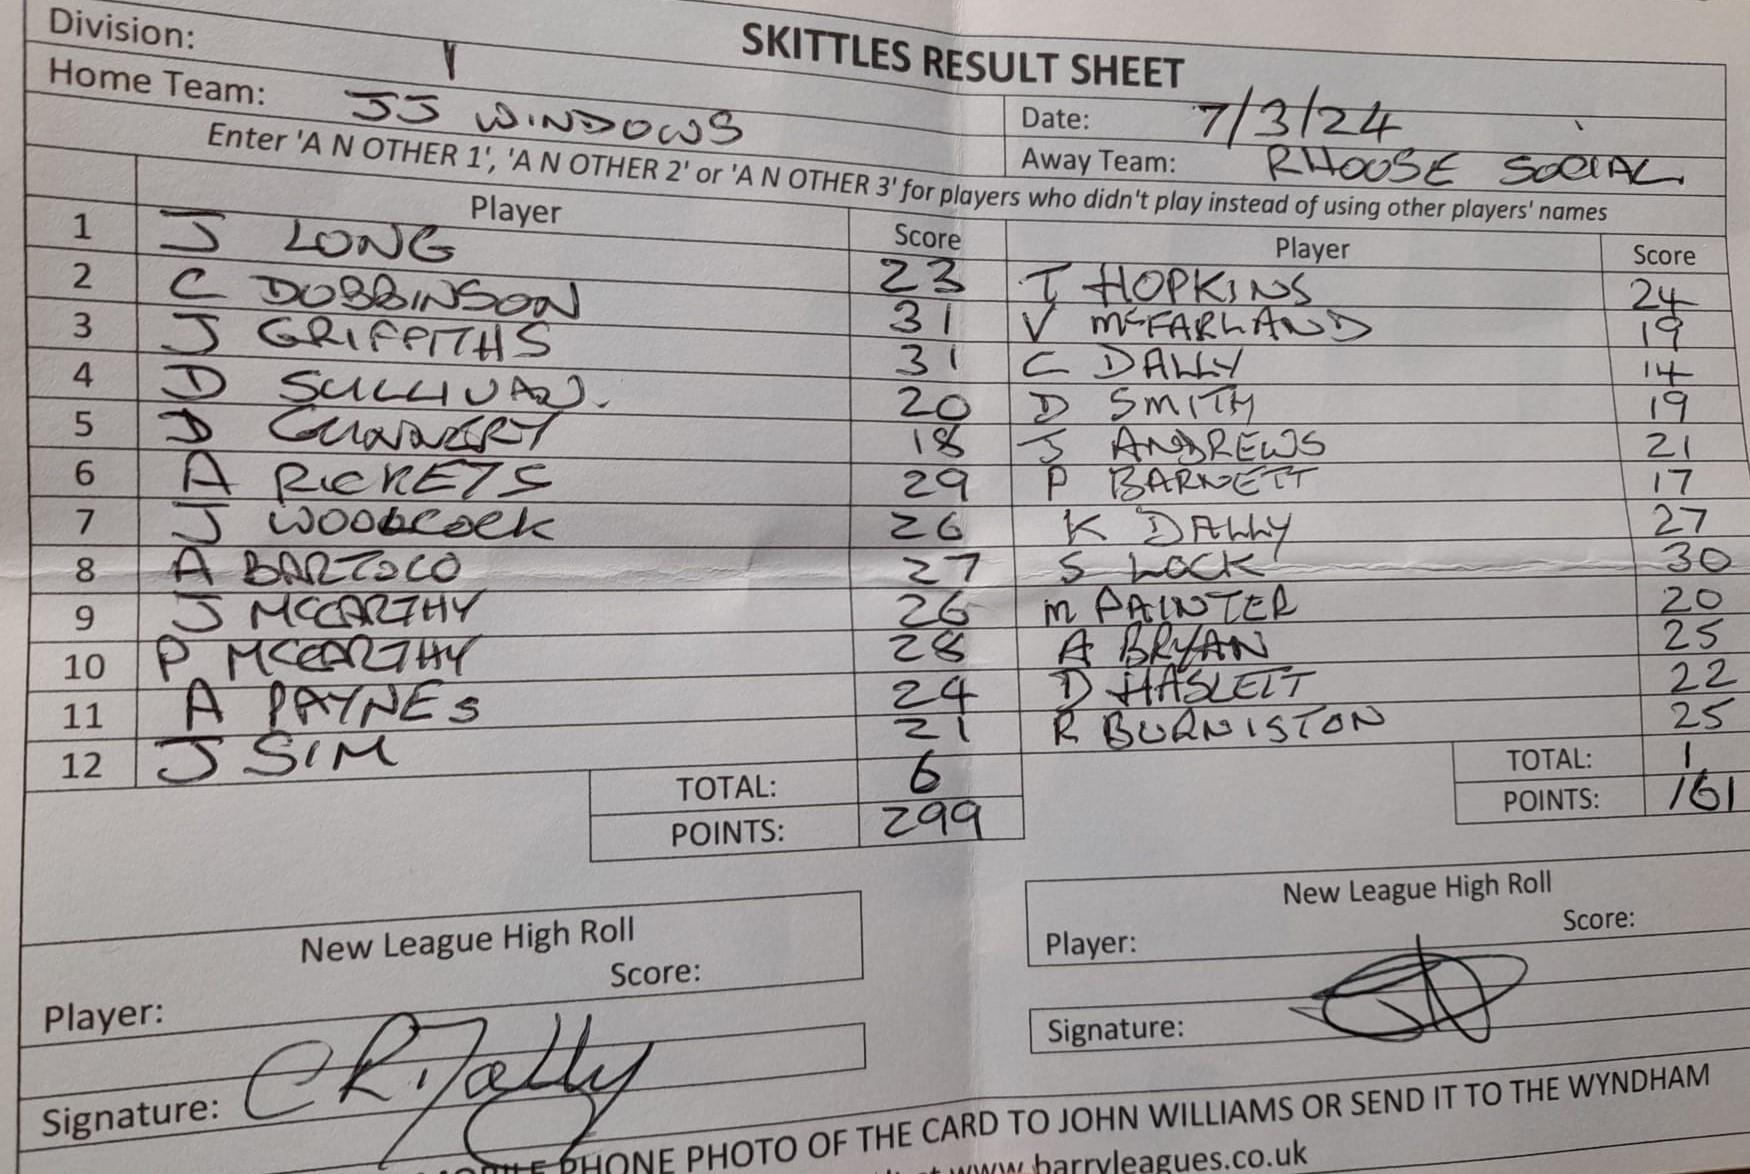 SKITTLES RESULT SHEET
Division: 1
Home Team: JJ WINDOWS
Date: 7/3/24
Away Team: RHOOSE SOCIAL
Enter 'A N OTHER 1', 'A N OTHER 2' or 'A N OTHER 3' for players who didn't play instead of using other players' names
Player Score Player Score
1 J LONG 23 T HOPKINS 24
2 C DOBBINSON 31 V McFARLAND 19
3 J GRIFFITHS 31 C DALLY 14
4 D SULLIVAN. 20 D SMITH 19
5 D GUNNERY 18 J ANDREWS 21
6 A RICKETS 29 P BARNETT 17
7 J WOODCOCK 26 K DALLY 27
8 A BARTOLO 27 S LOCK 30
9 J MCCARTHY 26 M PAINTER 20
10 P MCCARTHY 28 A BRYAN 25
11 A PAYNES 24 D HASLETT 22
12 J SIM 21 R BURNISTON 25
TOTAL: 6 TOTAL: 1
POINTS: 299 POINTS: 161
New League High Roll New League High Roll
Score: Score:
Player: Player:
Signature: Signature:
PHONE PHOTO OF THE CARD TO JOHN WILLIAMS OR SEND IT TO THE WYNDHAM
at www.barryleagues.co.uk